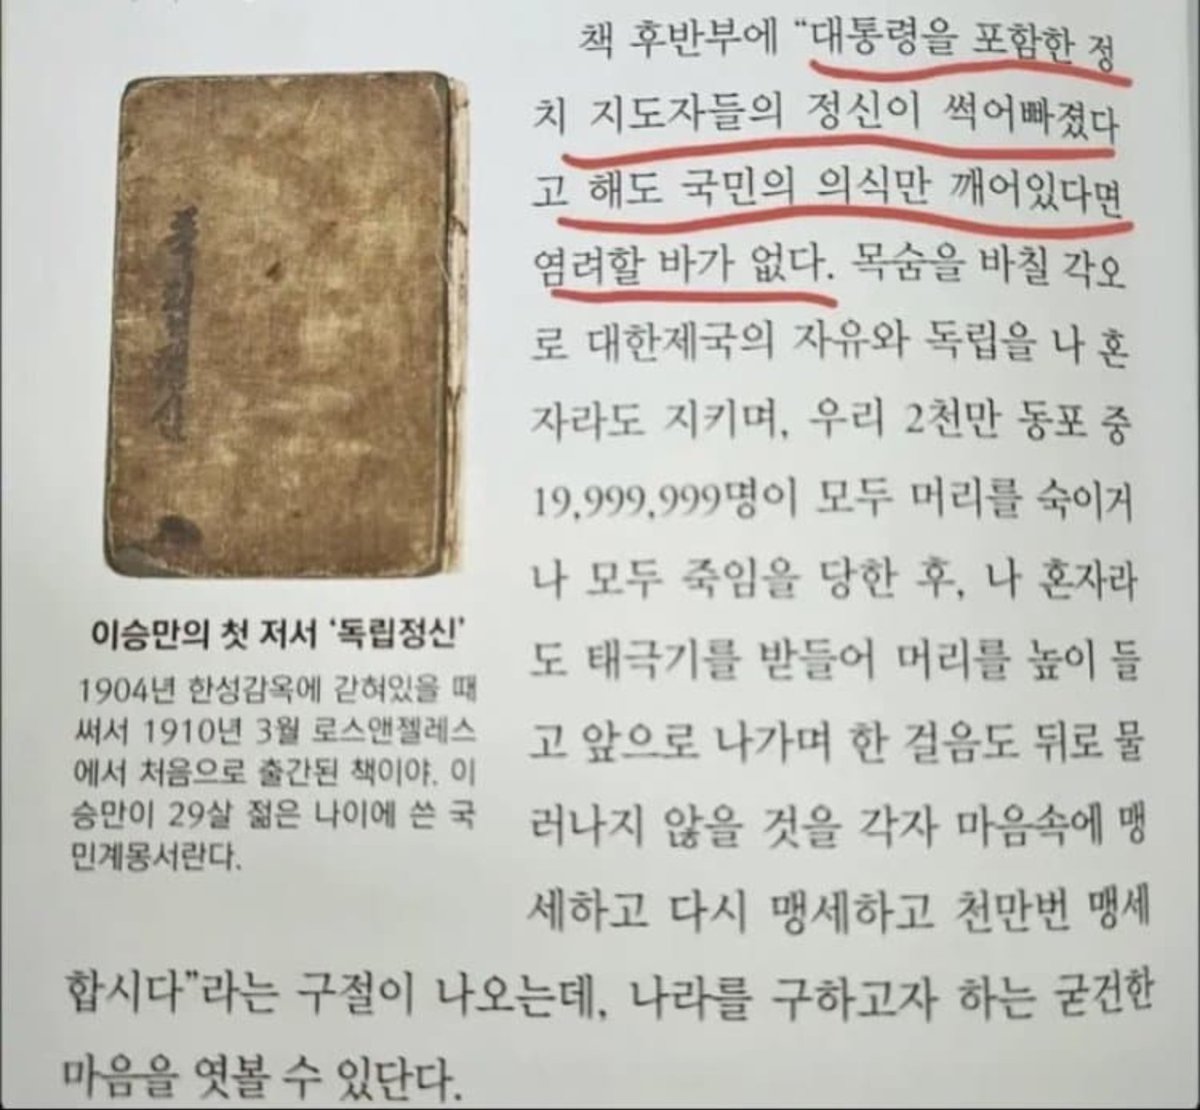 책 후반부에 “대통령을 포함한 정
치 지도자들의 정신이 썩어빠졌다
고 해도 국민의 의식만 깨어있다면
염려할 바가 없다. 목숨을 바칠 각오
로 대한제국의 자유와 독립을 나 혼
자라도 지키며, 우리 2천만 동포 중
19,999,999명이 모두 머리를 숙이거
나 모두 죽임을 당한 후, 나 혼자라
도 태극기를 받들어 머리를 높이 들
고 앞으로 나가며 한 걸음도 뒤로 물
러나지 않을 것을 각자 마음속에 맹
세하고 다시 맹세하고 천만번 맹세
합시다”라는 구절이 나오는데, 나라를 구하고자 하는 굳건한
마음을 엿볼 수 있단다.
이승만의 첫 저서 ‘독립정신’
1904년 한성감옥에 갇혀있을 때
써서 1910년 3월 로스앤젤레스
에서 처음으로 출간된 책이야. 이
승만이 29살 젊은 나이에 쓴 국
민계몽서란다.